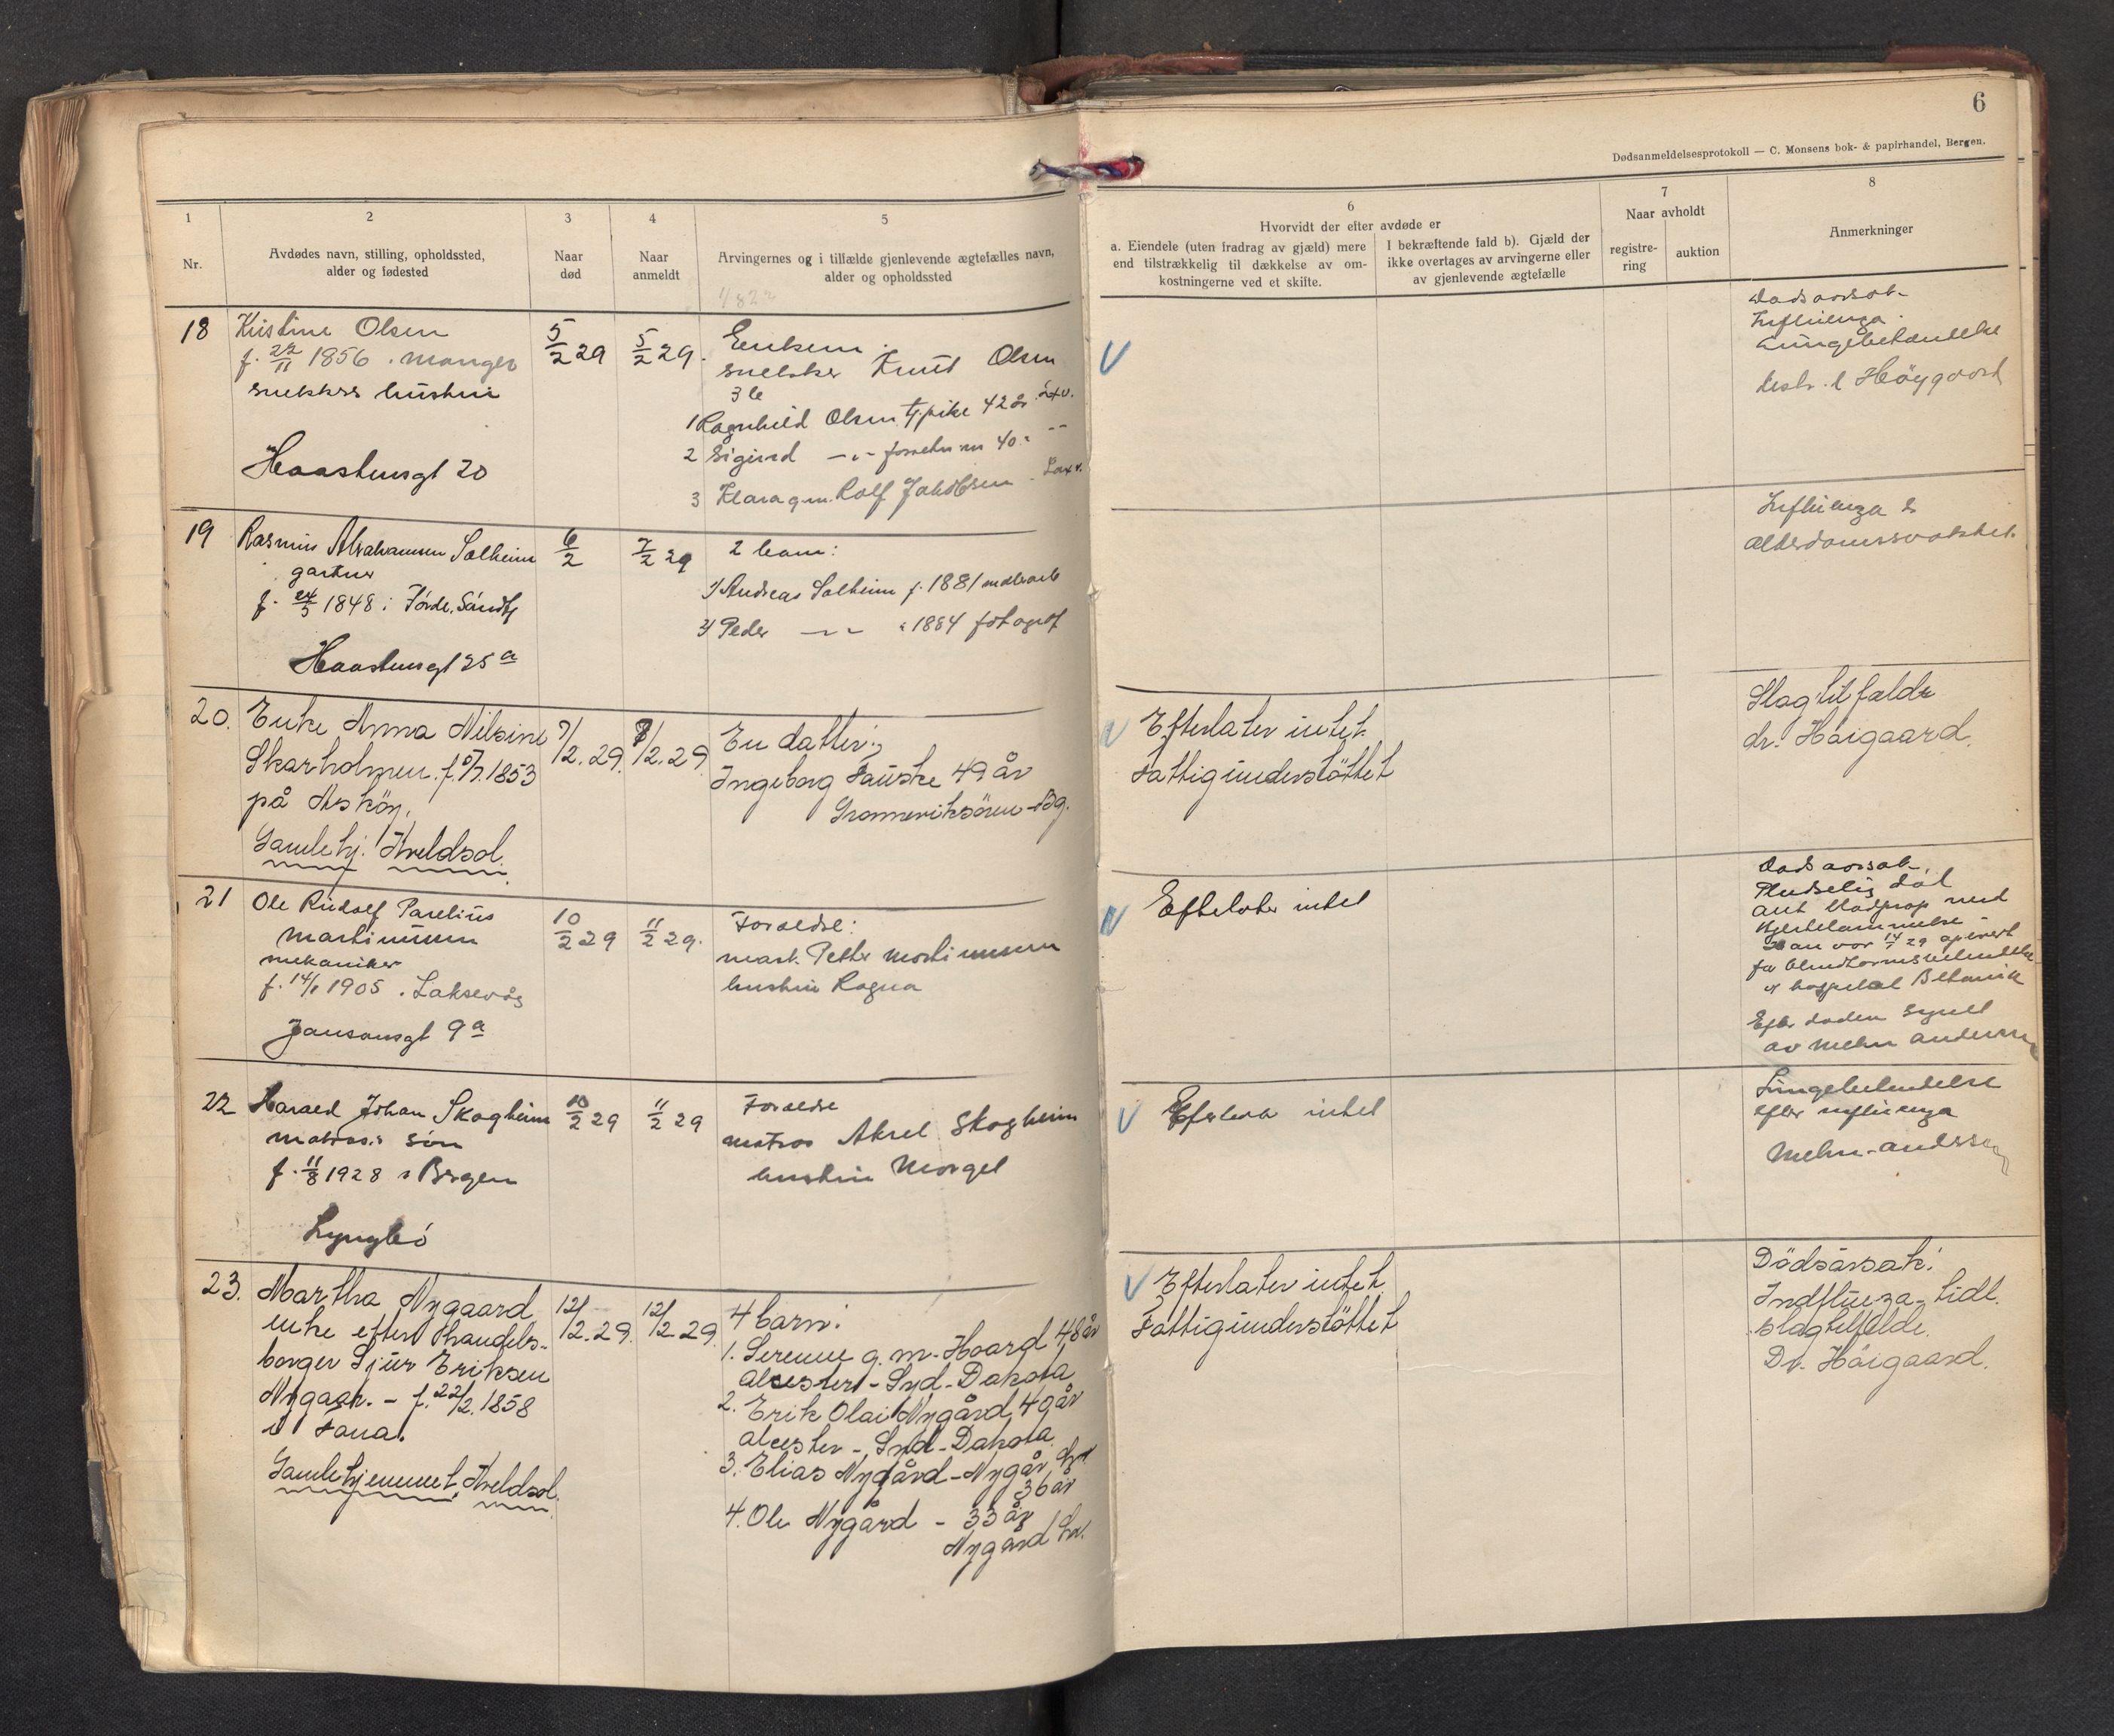 6
Dødsanmeldelsesprotokoll — C. Monsens bok- & papirhandel, Bergen.
1
Nr.
2
Avdødes navn, stilling, opholdssted,
alder og fødested
3
Naar
død
4
Naar
anmeldt
5
Arvingernes og i tilfælde gjenlevende ægtefælles navn,
alder og opholdssted
6
Hvorvidt der efter avdøde er
a. Eiendele (uten fradrag av gjæld) mere
end tilstrækkelig til dækkelse av om-
kostningerne ved et skifte.
I bekræftende fald b). Gjæld der
ikke overtages av arvingerne eller
av gjenlevende ægtefælle
7
Naar avholdt
registre-
ring
auktion
8
Anmerkninger
18
Kristine Olsen
f. 22/11 1856. Manger
snekkers hustru
Haastensgt 20
5/2 29
5/2 29.
Enkem.
snekker Knut Olsen
3 b
1 Ragnhild Olsen tj.pike 42 år Laxv.
2 Sigurd -"- 40
3 Klara g.m. Rolf Jakobsen Laxv.
Dødsårsak
Influenza.
Lungebetændelse
distr.l Høygaard
19
Rasmus Abrahamsen Solheim
gartner
f. 24/5 1848 i Førde, Søndfj
Haastensgt 25 a
6/2
7/2 29
2 barn:
1) Andreas Solheim f. 1881
2) Peder -"- " 1884 fotograf
Influenza &
alderdomssvakhet.
20.
Enke Anna Nilsine
Skarholmen. f. 5/7. 1853
på Askøy.
Gamlehj. Kveldsol.
7/2. 29.
8/2. 29.
En datter:
Ingeborg Fauske 49 år
Bg.
Efterlater intet.
Fattigunderstøttet
Slagtilfælde
dr. Høigaard.
21
Ole Rudolf Parelius
Martinussen
mekaniker
f. 14/1 1905. Laksevåg
Jansonsgt 9 a
10/2 29
11/2 29.
Forældre:
mask. Petter Martinussen
hustru Ragna
Efterlater intet
Dødsårsak
Pludselig død
ant. blodprop med
hjertelammelse
Han var 14/1 29 operert
for blindtarmsbetændelse
på hospital Betanien
Efter døden synet
av Mehn Andersen
22
Harald Johan Skogheim
matros's søn
f. 11/8 1928 i Bergen
Lyngbø
10/2 29
11/2 29
Forældre
matros Aksel Skogheim
hustru Margel
Efterlater intet
Lungebetændelse
efter influenza
Mehn-Andersen
23.
Martha Nygaard
enke efter handels-
borger Sjur Eriksen
Nygaar. - f. 22/2. 1858
i Fana.
Gamlehjemmet, Kveldsol.
12/2. 29.
12/2 29.
4 barn:
1. Serenne g. m. Hoard 48 år
Alcester - Syd-Dakota
2. Erik Olai Nygård 40 år
Alcester - Syd-Dakota
3. Elias Nygård - Nygår
36 år
4. Ole Nygård - 33 år
Nygård Lv.
Efterlater intet.
Fattigunderstøttet
Dødsårsak:
Indfluenza - tidl.
slagtilfælde.
Dr. Høigaard.